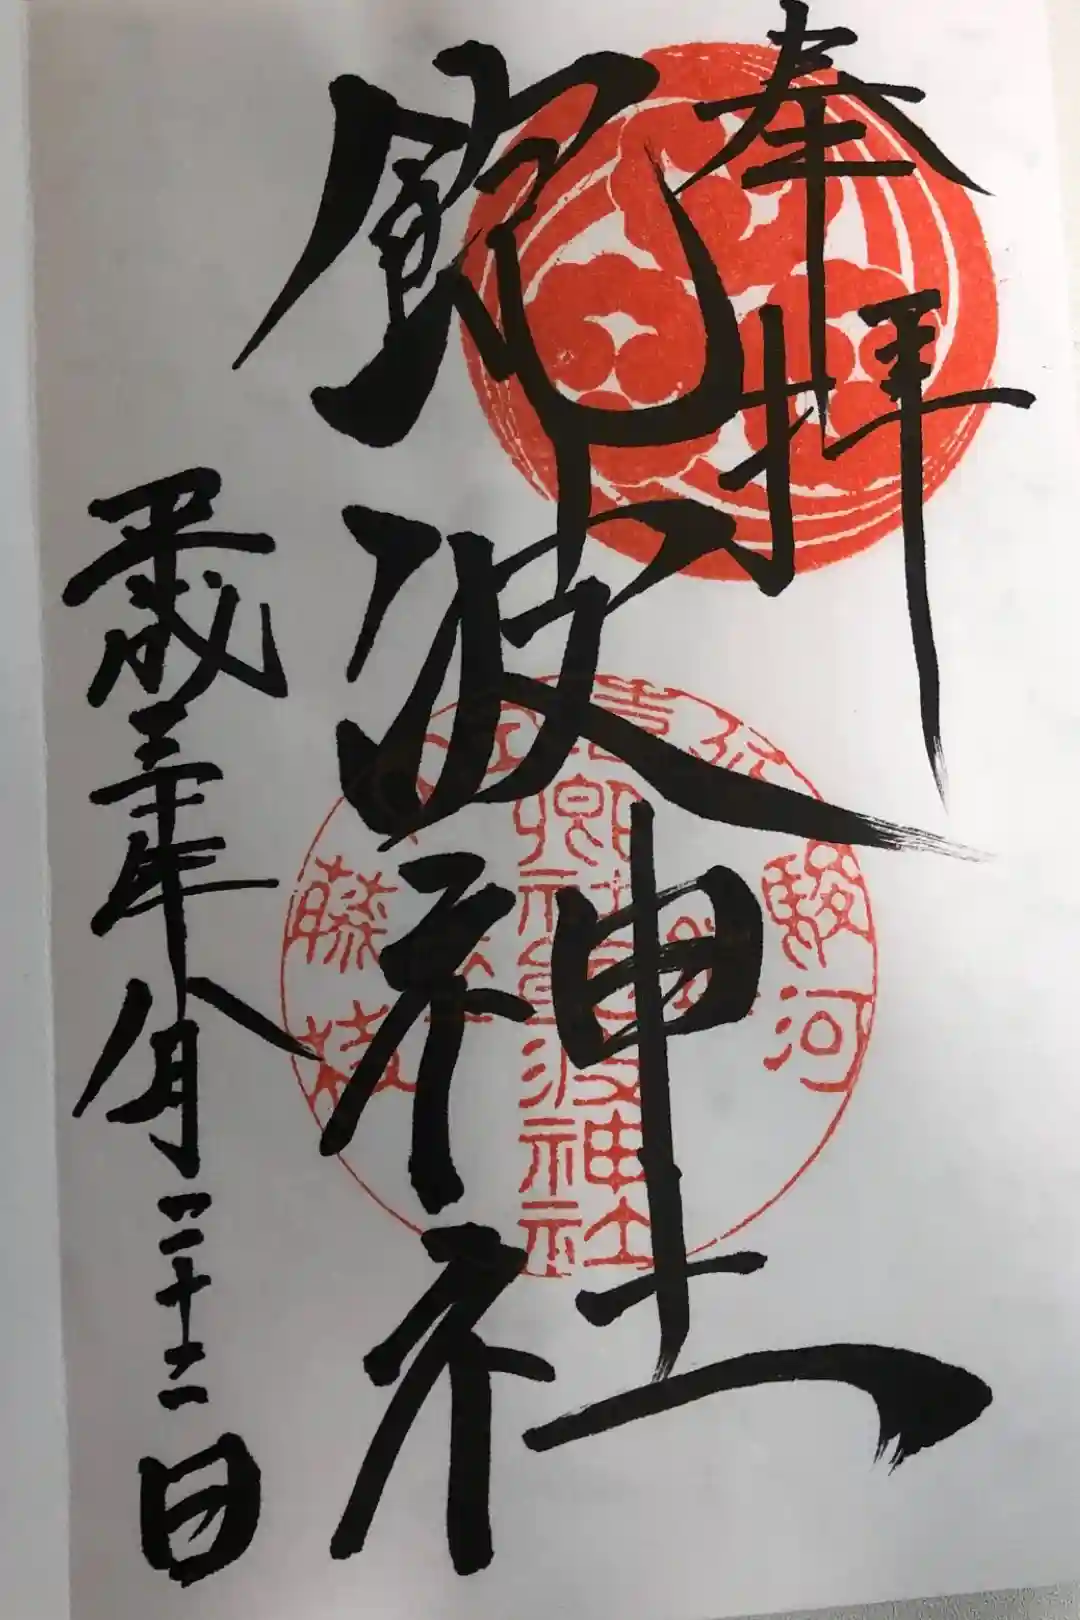 奉拝
飽波神社
平成三十年八月二十二日
駿河
郷社飽波神社
藤枝